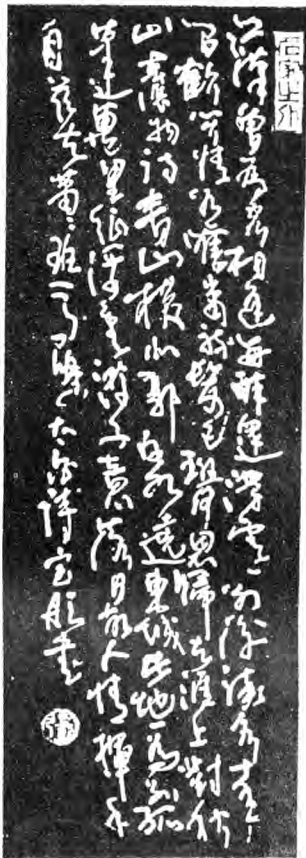 江漢曾為客相逢每醉還浮雲一别後流水十年
間歡笑情如舊蕭疏鬢已斑何因歸去淮上對秋
山韋應物詩青山橫北郭白水遶東城此地一為别孤
蓬萬里征浮雲游子意落日故人情揮手
自茲去蕭蕭班馬鳴太白詩書